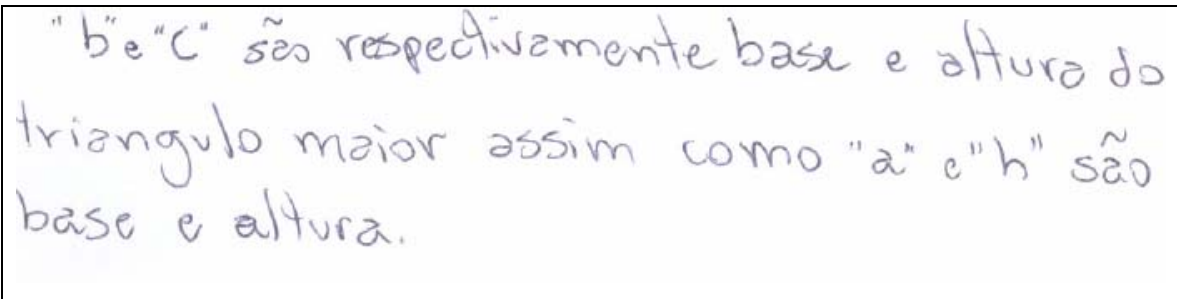 "b" e "c" são respectivamente base e altura do
triangulo maior assim como "a" e "h" são
base e altura.